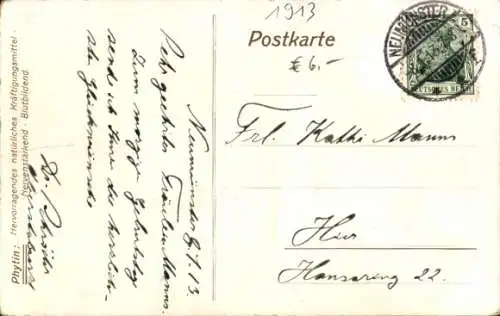 1913
Postkarte
€ 6.-
NEUMÜNSTER
5
DEUTSCHES REICH
Frl. Käthe Manns
Hier
Hansaring 22.
Neumünster 9.1.13.
Sehr geehrtes Fräulein Manns.
Zum morgigen Geburtstag
sende ich Ihnen die herzlich-
sten Glückwünsche
Dr.
Phytin: Hervorragendes natürliches Kräftigungsmittel.
Nervenstärkend - Blutbildend.